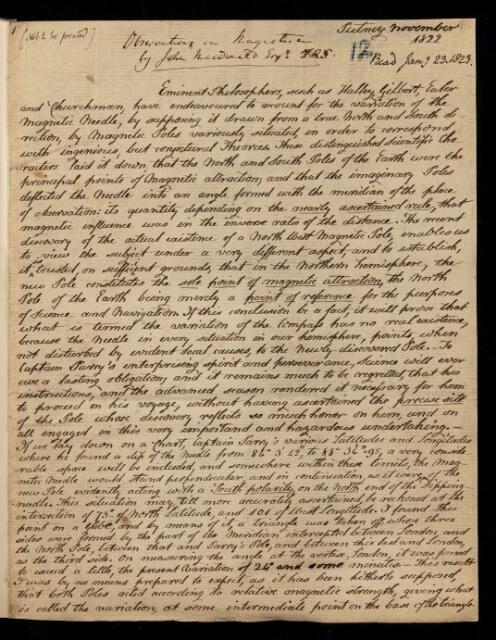 1
[Not to be printed]
Putney November
1822
Observations on Magnetism
by John Macdonald Esqr. F.R.S.
12
Read Jany. 23. 1823.
Eminent Philosophers, such as Halley, Gilbert, Euler
and Churchman, have endeavoured to account for the variation of the
Magnetic Needle, by supposing it drawn from a true North and South di-
rection, by Magnetic Poles variously situated, in order to correspond
with ingenious, but conjectural Theories. These distinguished scientific Cha-
racters laid it down that the North and South Poles of the Earth were the
principal points of Magnetic attraction, and that the imaginary Poles
deflected the Needle into an angle formed with the meridian of the place
of observation: its quantity depending on the nearly ascertained rule, that
magnetic influence was in the inverse ratio of the distance. The recent
discovery of the actual existence of a North West Magnetic Pole, enables us
to view the subject under a very different aspect, and to establish,
it is trusted, on sufficient grounds, that in the Northern hemisphere, the
new Pole constitutes the sole point of magnetic attraction, the North
Pole of the Earth being merely a point of reference for the purposes
of Science and Navigation. If this conclusion be a fact, it will prove that
what is termed the variation of the Compass has no real existence,
because the Needle in every situation in our hemisphere, points, when
not disturbed by evident local causes, to the newly discovered Pole. - To
Captain Parry's enterprising spirit and perseverance, Science will ever
owe a lasting obligation; and it remains much to be regretted, that his
instructions, and the advanced season rendered it necessary for him
to proceed on his voyage, without having ascertained the precise site
of the Pole whose discovery reflects so much honor on him, and on
all engaged on this very important and hazardous undertaking. -
If we lay down on a Chart, Captain Parry's various Latitudes and Longitudes
where he found a dip of the Needle from to a very conside
rable space will be included, and somewhere within these limits, the Mag-
netic Needle would stand perpendicular, and in continuation as it were, of the
new Pole evidently acting with a South polarity on the North end of the Dipping-
needle. This situation may, till more accurately ascertained, be reckoned at the
intersection of 73° of North Latitude, and 101 of West Longitude. I found this
point on a Globe, and by means of it, a triangle was taken off whose three
sides were formed by the part of the Meridian intercepted between London, and
the North Pole, between that and Parry's Pole, and between this and London,
as the third side. On measuring the angle at the vertex, London, it was found
to exceed a little, the present Variation of 24° and some minutes. - This result
I was by no means prepared to expect, as it has been hitherto supposed,
that both Poles acted according to relative magnetic strength, giving what
is called the variation, at some intermediate point on the base of the triangle.